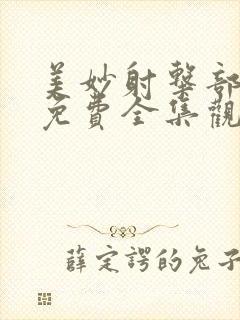 美妙射擊部
免費全集觀
薛定諤的兔子